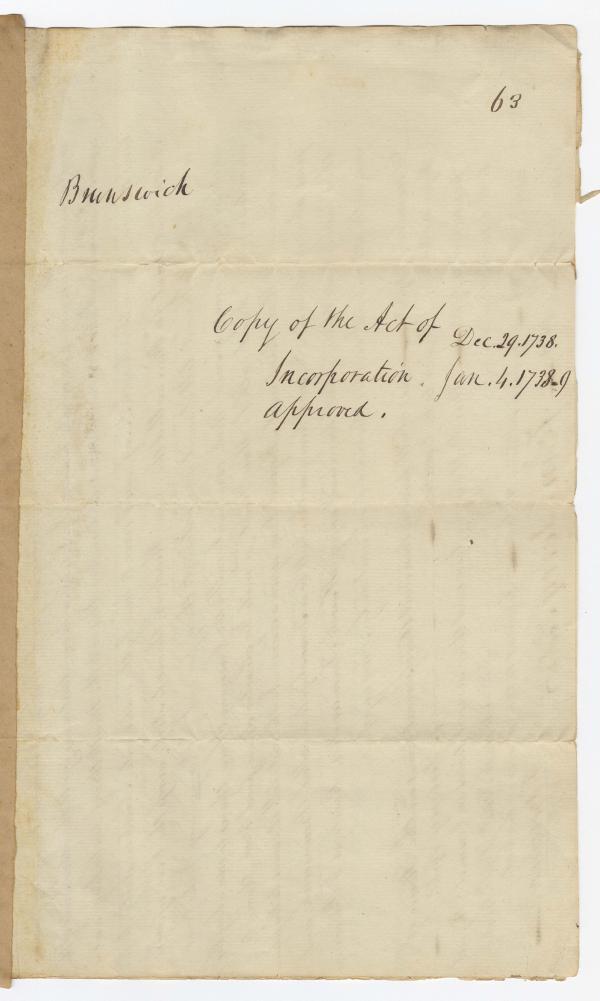 63
Brunswick
Copy of the Act of Dec. 29. 1738.
Incorporation. Jan. 4. 1738-9
approved.